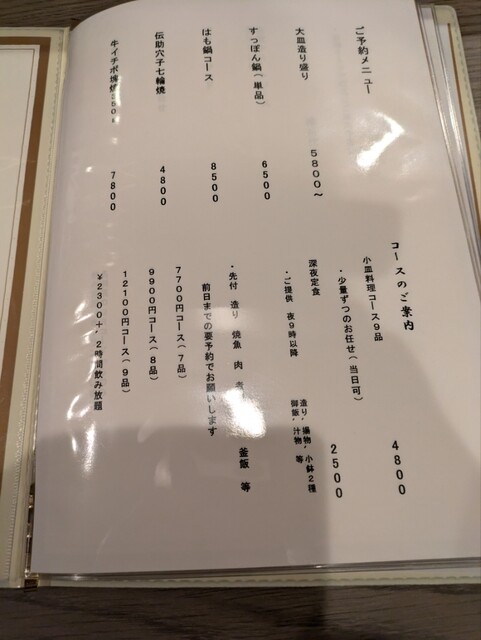 ご予約メニュー
大皿造り盛り 5800〜
すっぽん鍋(単品) 6500
はも鍋コース 8500
伝助穴子七輪焼 4800
牛イチボ塊焼250g 7800
コースのご案内
小皿料理コース9品 4800
・少量ずつのお任せ(当日可)
深夜定食 2500
・ご提供 夜9時以降
造り、揚物、小鉢2種
御飯、汁物、等
・先付 造り 焼魚 肉 釜飯 等
前日までの要予約でお願いします
7700円コース(7品)
9900円コース(8品)
12100円コース(9品)
¥2300+、2時間飲み放題